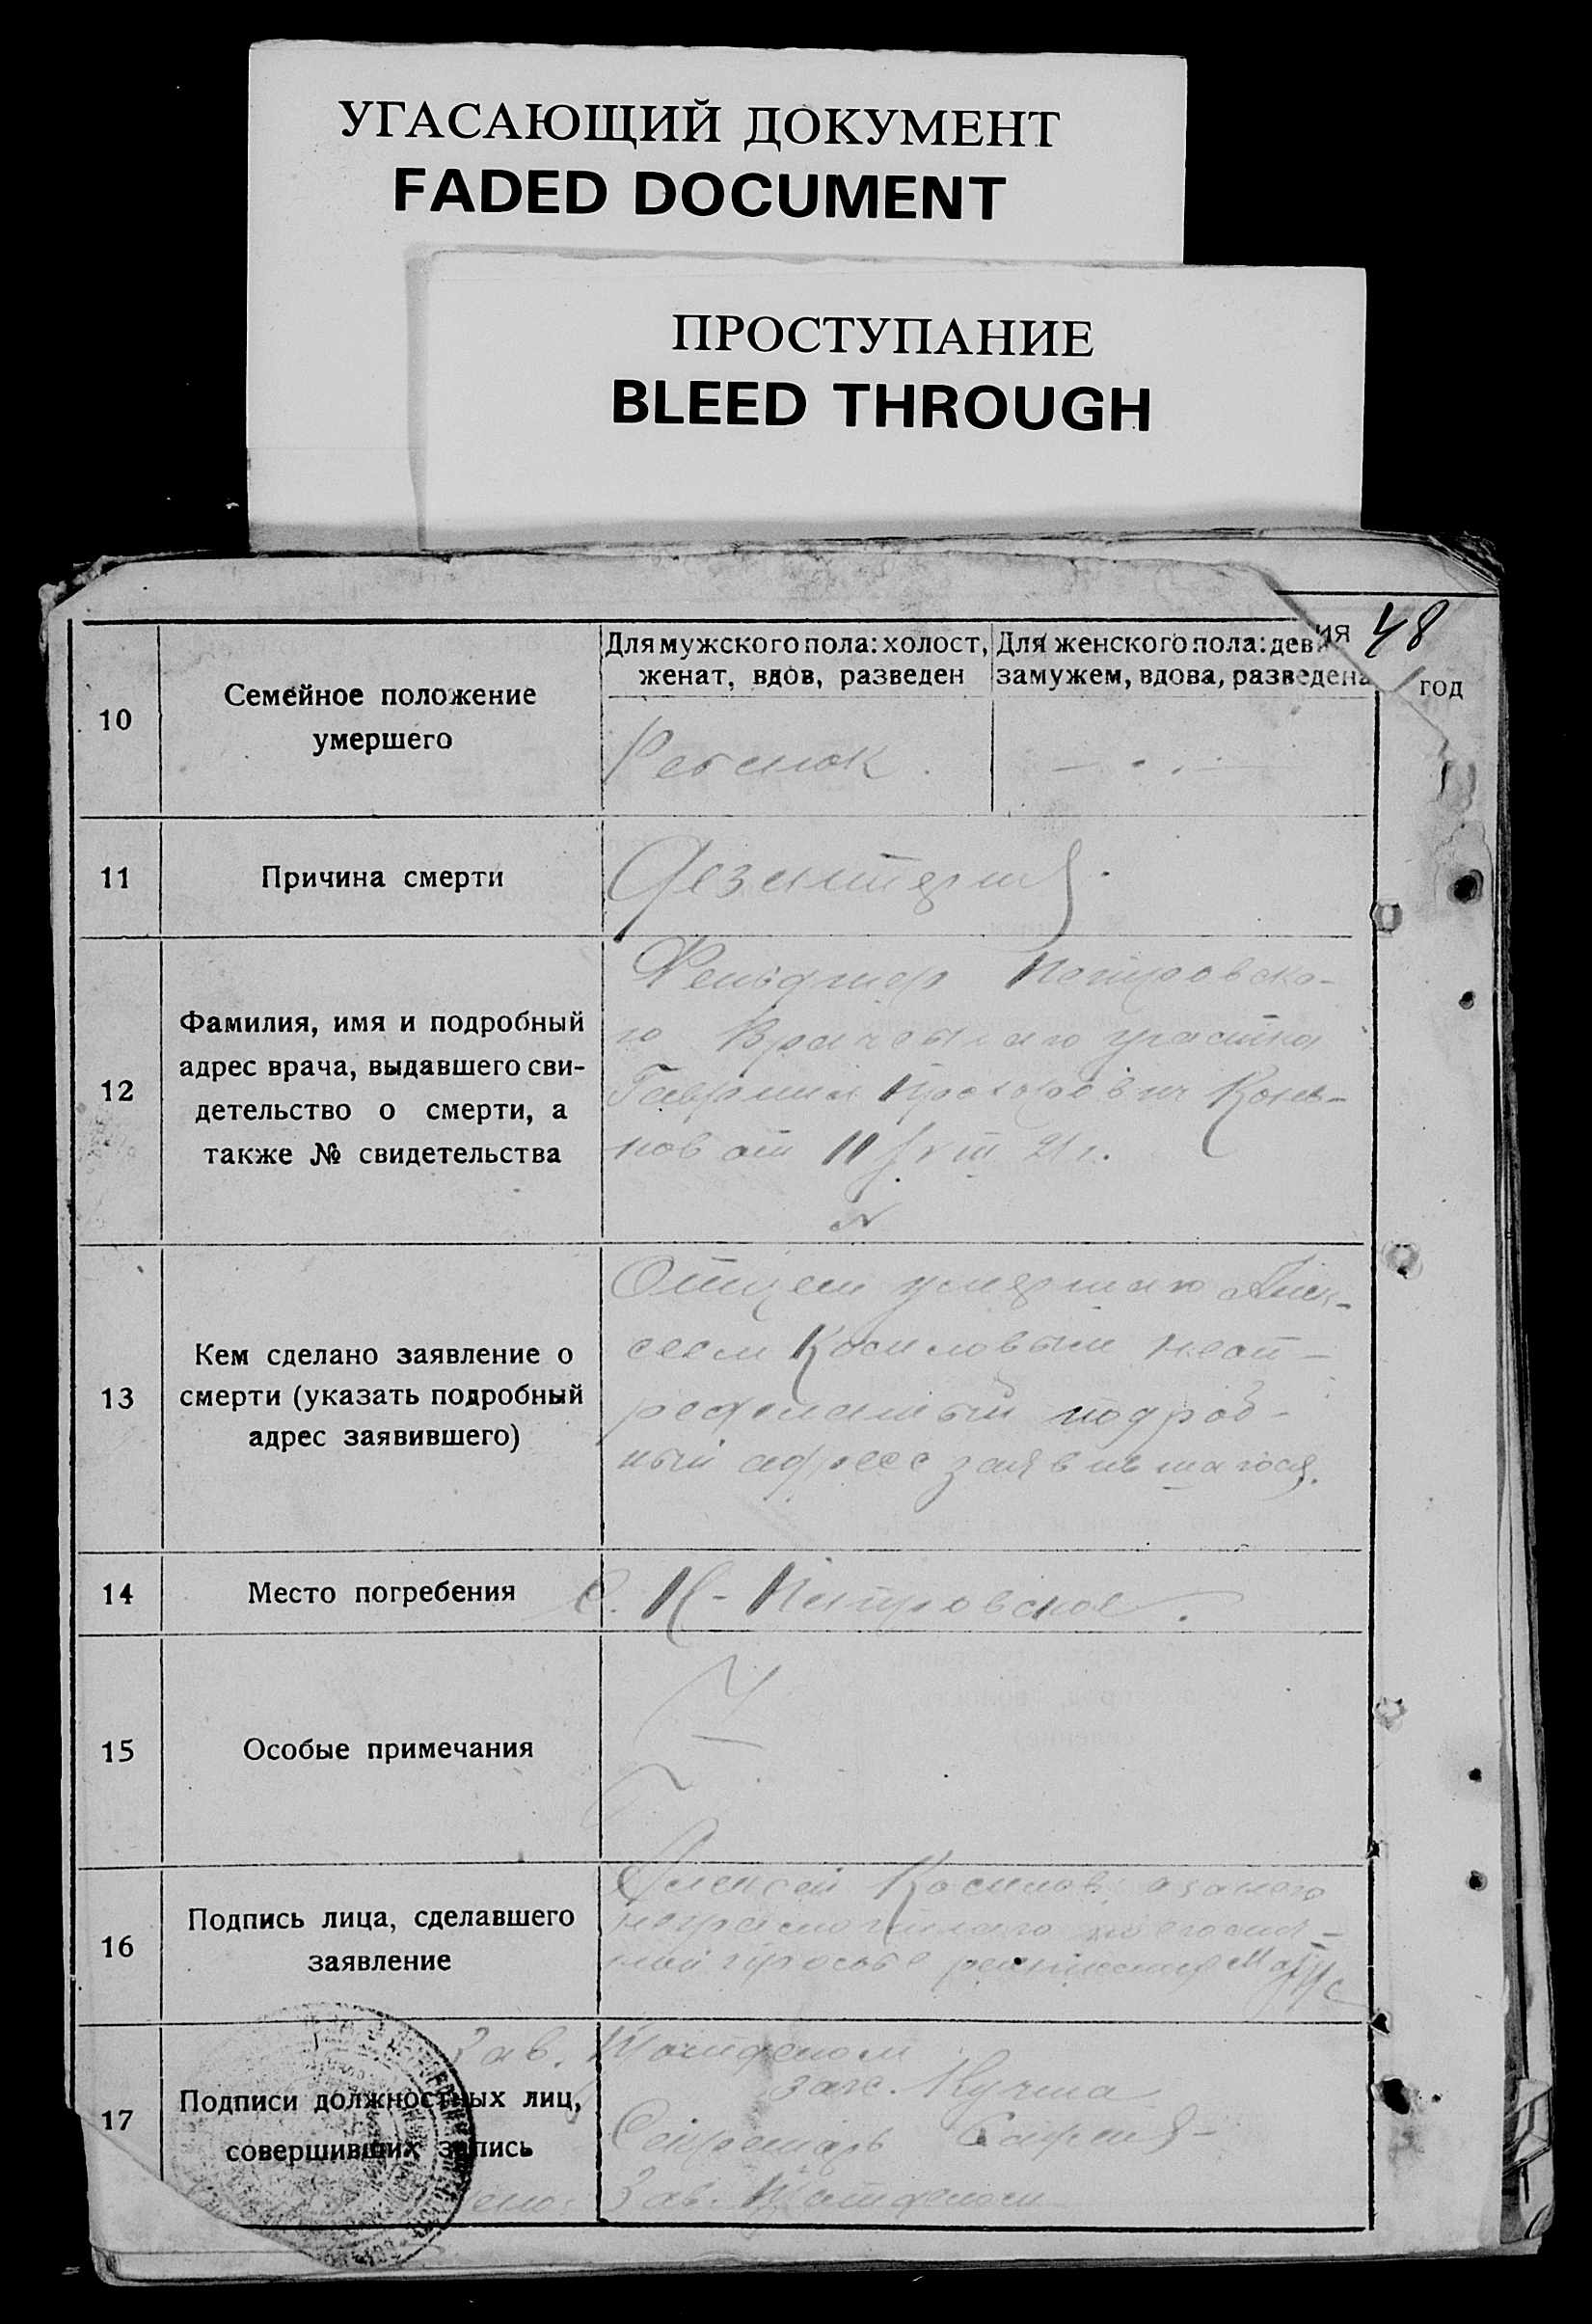 УГАСАЮЩИЙ ДОКУМЕНТ
FADED DOCUMENT
ПРОСТУПАНИЕ
BLEED THROUGH
48
ия
год
10
Семейное положение
умершего
Для мужского пола: холост,
женат, вдов, разведен
Для женского пола: дев
замужем, вдова, разведена
Ребенок.
11
Причина смерти
Дезинтерия.
12
Фамилия, имя и подробный
адрес врача, выдавшего сви-
детельство о смерти, а
также № свидетельства
Фельдшер Петровско-
го Врачебнаго участка
Гавриил Прохорович
нов от 11/VIII 21 г.
№
13
Кем сделано заявление о
смерти (указать подробный
адрес заявившего)
Отцем умершаго Алек-
сеем Косиловым
подроб-
ный адресс заявившагося.
14
Место погребения
С. Н-Петровское.
15
Особые примечания
16
Подпись лица, сделавшего
заявление
Алексей Косилов а за него
неграмотнаго по его лич-
ной просьбе расписался
17
Подписи должностных лиц,
совершивших запись
Зав.
загс. Кучма
Секретарь
Зав.